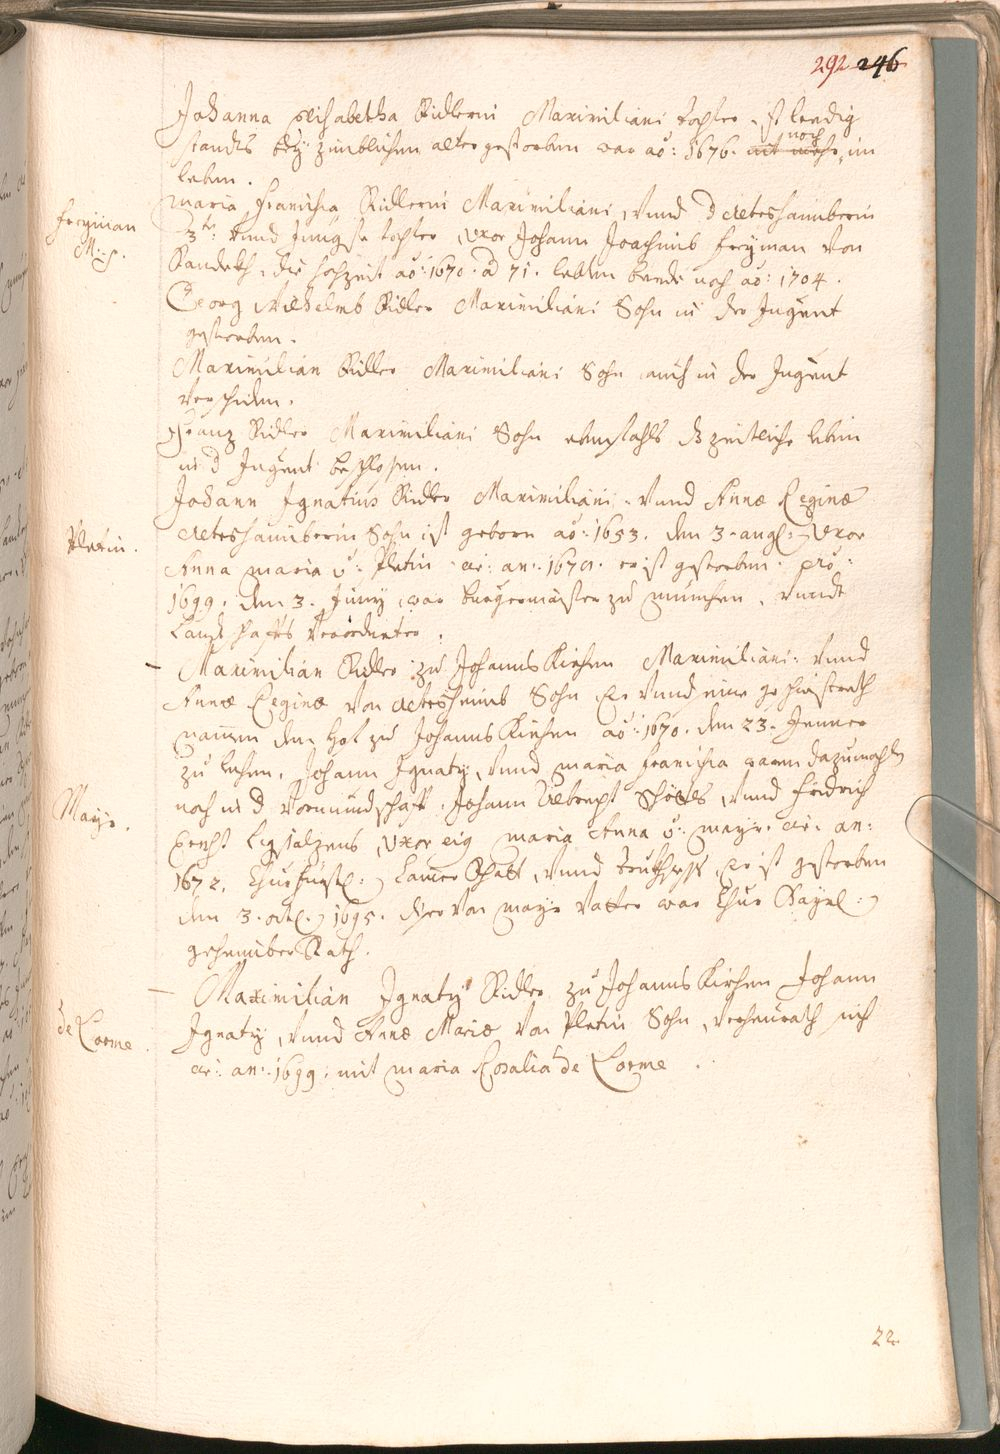 292 246
Johanna Elisabetha Ridlerin Maximiliani tochter, ist leedig
standts bey zimblichem alter gestorben war ao: 1676. nit mehr noch im
leben.
Freyman
M: S.
Maria Francisca Ridlerin Maximiliani, vnnd d Aeteshaimberin
3te: vnnd Jüngste tochter, vxor Johann Joachimb Freyman von
Randeckh, die hochzeit ao: 1670. ad 71. lebten beede noch ao: 1704.
Georg Wilhelmb Ridler Maximiliani Sohn in der Jugent
gestorben.
Maximilian Ridler Maximiliani Sohn auch in der Jugent
verschiden.
Franz Ridler Maximiliani Sohn ebenfahls dz zeitliche leben
in d Jugent beschlosen.
Johann Ignatius Ridler Maximiliani vnnd Annæ Reginæ
Pletin.
Aeteshaimberin Sohn ist geborn ao: 1653. den 3. Vxor
Anna Maria v: Pletin an: er ist gestorben
1699. den 3. Juny, war burgermaister zu München, vnndt
Landtschaffts Verordneter.
Maximilian Ridler zu Johannskirchen Maximiliani: vnnd
Annæ Reginæ von Aetesheimb Sohn Er vnnd seine geschwistrath
namen den Hof zu Johannskirchen ao: 1670. den 23. Jenner
zu lehen, Johann Ignaty, vnnd Maria Francisca waren dazumahls
Mayr.
noch in d vormundschafft, Johann Albrecht vnnd Fridrich
Ligsalzens, vxor eig Maria Anna v: Mayr. an:
1672. Churfürstl: Camer vnnd Truchsess, Er ist gestorben
den 3. 1695. diser von Mayr Vatter war Chur Bayrl:
gehaimber Rath.
de Lorme.
Maximilian Ignaty Ridler zu Johannskirchen Johann
Ignaty, vnnd Annæ Mariæ von Pletin Sohn, verheurath sich
an: 1699. mit Maria Rosalia de Lorme.
22.